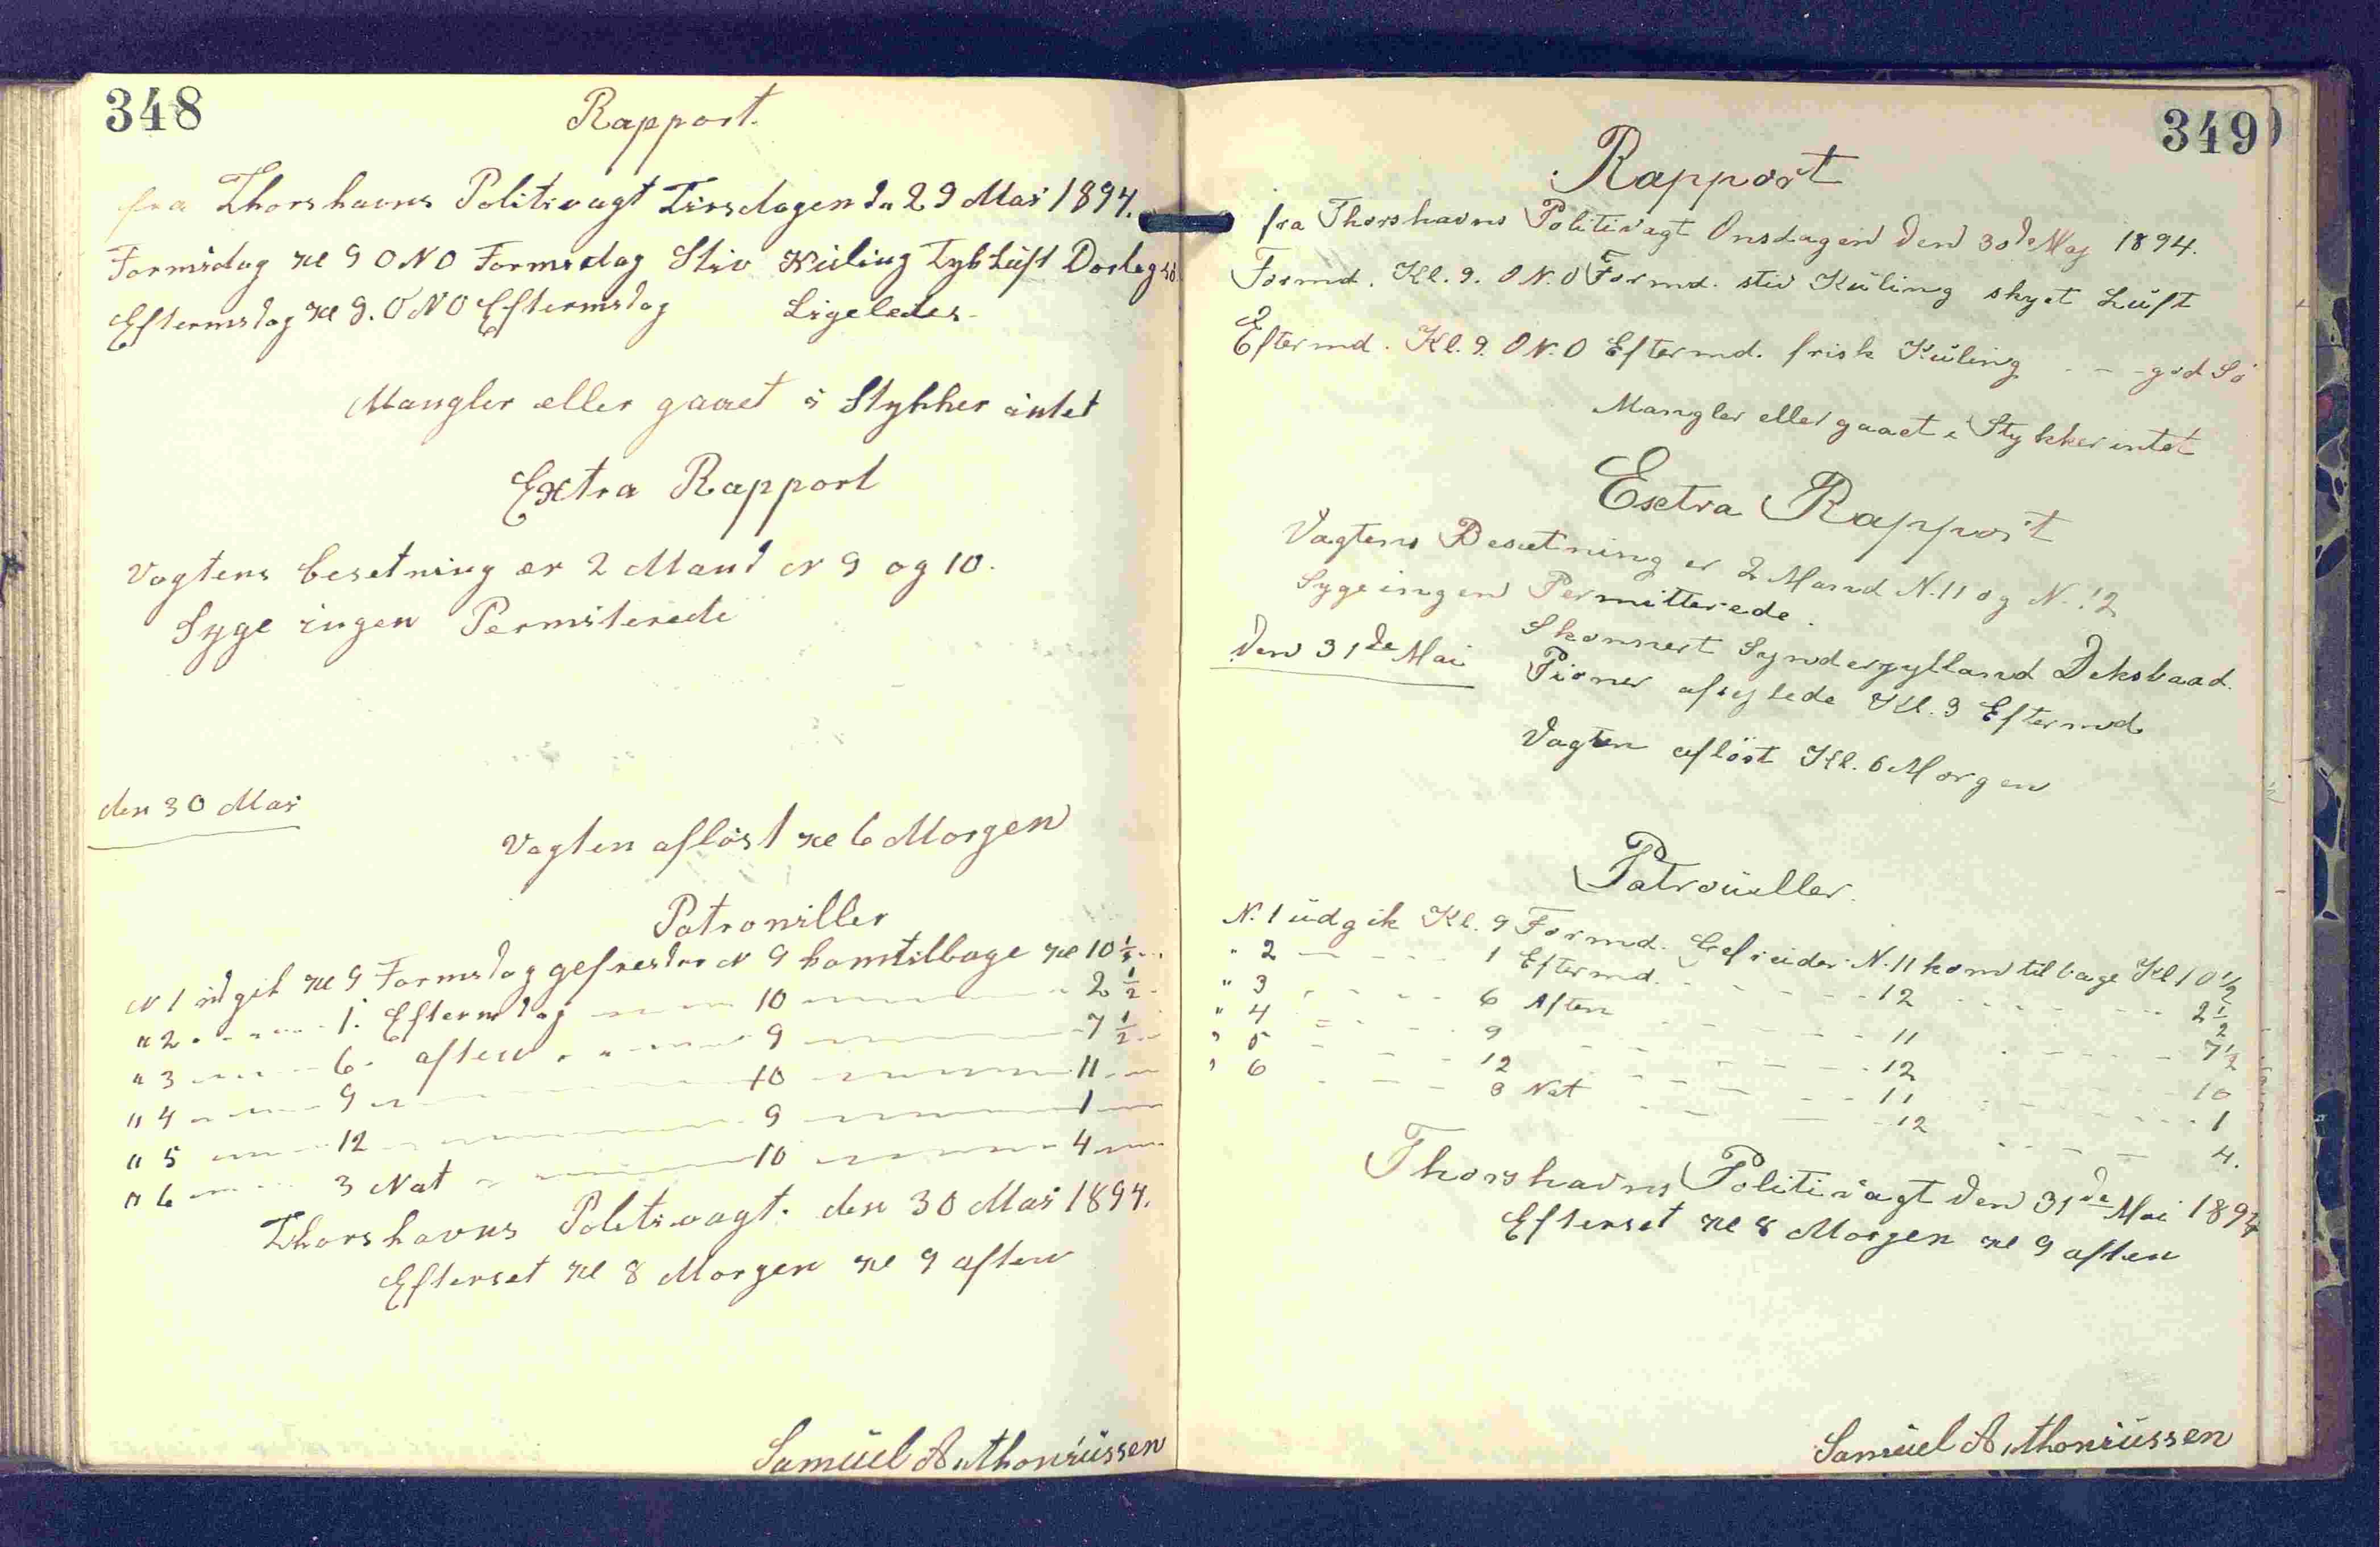 348
Rapport.
fra Thorshavns Politivagt Tirsdagen dn 29 Mai 1894.
Formidag Kl 9 ONO Formidag Stiv Küling Tyk Lüft Dorleg Sö
Eftermidag Kl 9. ONO Eftermidag Ligeledes
Mangler eller gaaet i Stykker intet
Extra Rapport
Vagtens besetning er 2 Mand N 9 og 10.
Syge ingen Permiterede
den 30 Mai
Vagten aflöst Kl 6 Morgen
Patrouiller
N 1 üdgik Kl 9 Formidag gefreider N 9 komtilbage Kl 10 1/2
" 2 1. Eftermidag 10 2 1/2
" 3 6 aften 9 7 1/2
" 4 9 10 11
" 5 12 9 1
" 6 3 Nat 10 4
Thorshavns Politivagt. den 30 Mai 1894.
Efterset Kl 8 Morgen Kl 9 aften
Samüel Anthoniüssen
349
Rapport
fra Thorshavns Politivagt Onsdagen den 30de Maj 1894.
Formd. Kl. 9. ON.O Formd. stiv Küling skyet Lüft
Eftermd. Kl. 9. ON.O Eftermd. frisk Küling - - - god Sö
Mangler eller gaaet i Stykker intet
Extra Rapport
Vagtens Besætning er 2 Mand N. 11 og N. 12
Syge ingen Permitterede.
Den 31de Mai Skonnert Synderjylland Deksbaad.
Pioner afsejlede Kl. 3 Eftermd
Vagten aflöst Kl. 6 Morgen
Patroüeller.
N. 1 üdgik Kl. 9 Formd. Gefreider N. 11 kom tilbage Kl 10 1/2
" 2 1 Eftermd. 12 2 1/2
" 3 6 Aften 11 7 1/2
" 4 9 12 10
" 5 12 11 1
" 6 3 Nat 12 4.
Thorshavns Politivagt den 31de Mai 1894
Efterset Kl 8 Morgen Kl 9 aften
Samüel Anthoniüssen